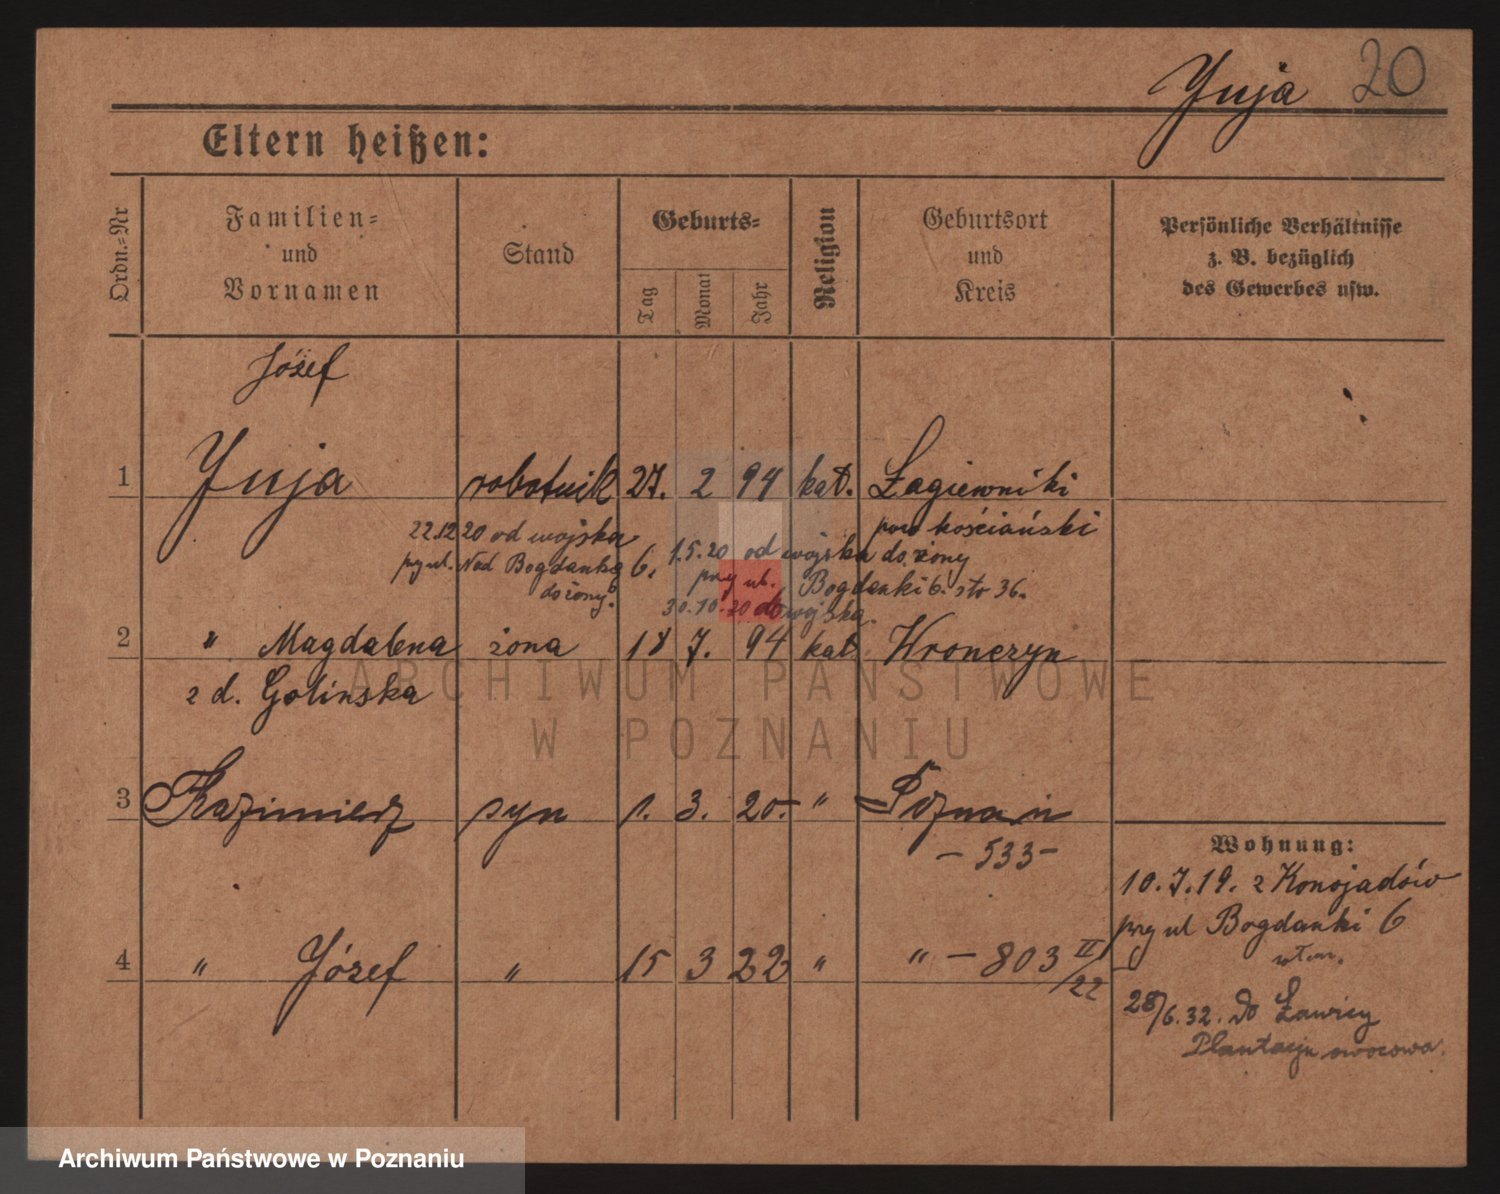 Yuja 20
Eltern heißen:
Ordn.=Nr
Familien=
und
Vornamen
Stand
Geburts=
Tag
Monat
Jahr
Religion
Geburtsort
und
Kreis
Persönliche Verhältnisse
z. B. bezüglich
des Gewerbes usw.
Józef
1 Yuja robotnik 27. 2 94 kat. Łagiewniki
pow kościański
22.12 20 od wojska
przy ul. Nad Bogdanką 6.
do żony.
1.5.20 od wojska do żony
przy ul. Bogdanki 6. sto 36.
30.10.20 do wojska.
2 " Magdalena żona 18 7. 94 kat. Wronczyn
z d. Golinska
3 Kazimierz syn 1. 3. 20. " Poznań
- 533 -
4 " Józef " 15 3 22 " " - 803 II/22
Wohnung:
10.7.19. z Konojadów
przy ul Bogdanki 6
28/6.32. do Ławicy
Plantacja owocowa.
ARCHIWUM PAŃSTWOWE
W POZNANIU
Archiwum Państwowe w Poznaniu